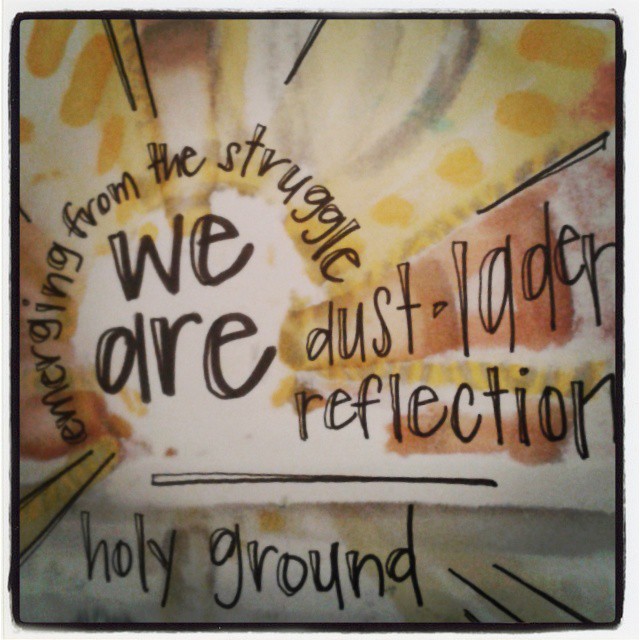 emerging from the struggle
we
are
dust-laden
reflection
holy ground